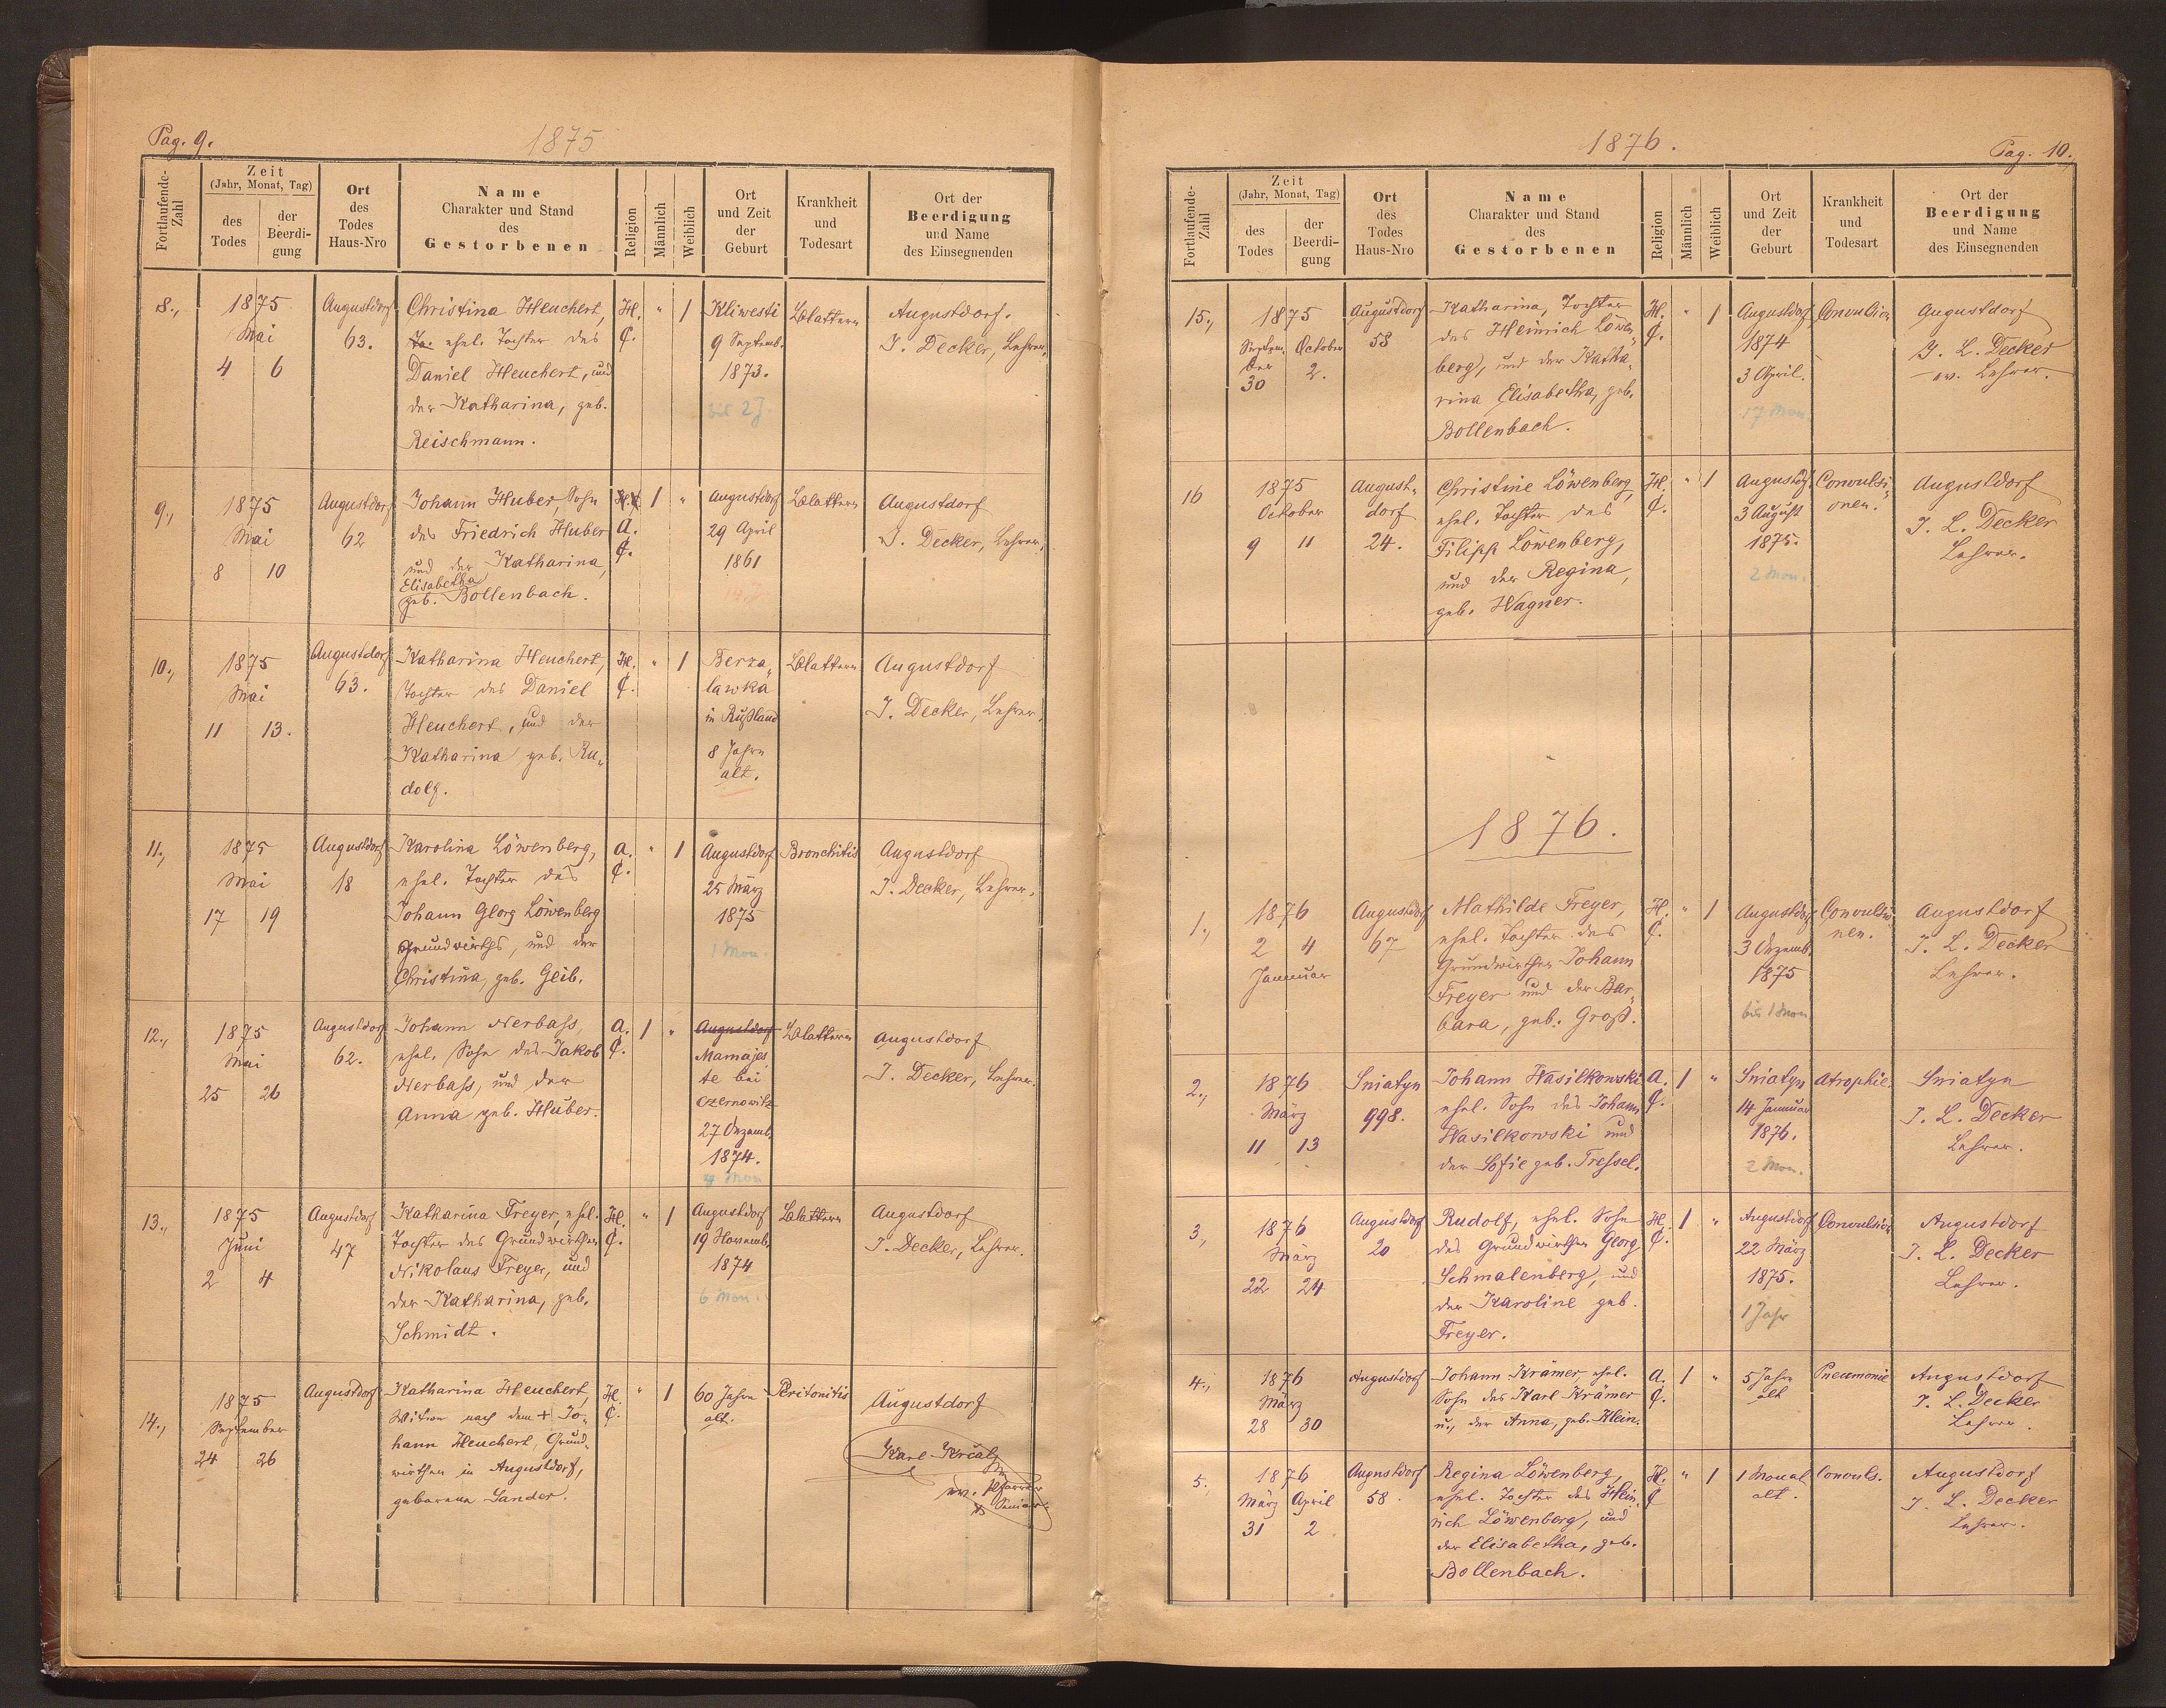 Pag. 9.
1875
Fortlaufende-Zahl
Zeit
(Jahr, Monat, Tag)
des Todes
der Beerdi-gung
Ort des Todes Haus-Nro
Name
Charakter und Stand
des
Gestorbenen
Religion
Männlich
Weiblich
Ort und Zeit der Geburt
Krankheit und Todesart
Ort der
Beerdigung
und Name
des Einsegnenden
8.,
1875
Mai
4 6
Augustdorf
63.
Christina Heuchert,
ehel. Tochter des
Daniel Heuchert, und
der Katharina, geb.
Reischmann.
H.
C.
" 1
Kliwesti
9 Septemb.
1873.
bis 2 J
Blattern
Augustdorf.
J. Decker, Lehrer.
9.,
1875
Mai
8 10
Augustdorf
62
Johann Huber, Sohn
des Friedrich Huber
und der Katharina,
Elisabetha
geb. Bollenbach.
H.C
A.
C.
1 "
Augustdorf
29 April
1861
14 J
Blattern
Augustdorf
J. Decker, Lehrer.
10.,
1875
Mai
11 13.
Augustdorf
63.
Katharina Heuchert,
Tochter des Daniel
Heuchert, und der
Katharina geb. Ru„
dolf.
H.
C.
" 1
Berza„
lawka
in Rußland
8 Jahre
alt.
Blattern
Augustdorf
J. Decker, Lehrer.
11.,
1875
Mai
17 19
Augustdorf
18
Karolina Löwenberg,
ehel. Tochter des
Johann Georg Löwenberg
Grundwirths, und der
Christina, geb. Geib.
A.
C.
" 1
Augustdorf
25 März
1875
1 Mon.
Bronchitis
Augustdorf
J. Decker, Lehrer.
12.,
1875
Mai
25 26
Augustdorf
62.
Johann Nerbass,
ehel. Sohn des Jakob
Nerbass, und der
Anna geb. Huber.
A.
C.
1 "
Augustdorf
Mamajes
te bei
Czernowitz
27 Dezemb.
1874.
Mon
Blattern
Augustdorf
J. Decker, Lehrer.
13.,
1875
Juni
2 4
Augustdorf
47
Katharina Freyer, ehel.
Tochter des Grundwirthen
Nikolaus Freyer, und
der Katharina, geb.
Schmidt.
H.
C.
" 1
Augustdorf
19 Novemb.
1874
6 Mon.
Blattern
Augustdorf
J. Decker, Lehrer.
14.,
1875
September
24 26
Augustdorf
Katharina Heuchert,
Witwe nach dem + Jo„
hann Heuchert, Grund„
wirthen in Augustdorf,
geborene Sander.
H.
C.
" 1
60 Jahre
alt.
Peritonitis
Augustdorf
Karl Krcal
ev. Pfarrer
Senior
1876.
Pag. 10.
Fortlaufende-Zahl
Zeit
(Jahr, Monat, Tag)
des Todes
der Beerdi-gung
Ort des Todes Haus-Nro
Name
Charakter und Stand
des
Gestorbenen
Religion
Männlich
Weiblich
Ort und Zeit der Geburt
Krankheit und Todesart
Ort der
Beerdigung
und Name
des Einsegnenden
15.,
1875
Septem„ October
ber
30 2.
Augustdorf
58
Katharina, Tochter
des Heinrich Löwen„
berg, und der Katha„
rina Elisabetha, geb.
Bollenbach.
H.
C.
" 1
Augustdorf
1874
3 April.
17 Mon.
Convulsion
Augustdorf
J. L. Decker
ev. Lehrer.
16
1875
October
9 11
August„
dorf
24.
Christine Löwenberg,
ehel. Tochter des
Filipp Löwenberg,
und der Regina,
geb. Wagner.
H.
C.
" 1
Augustdf.
3 August
1875.
2 Mon.
Convulsi„
onen.
Augustdorf
J. L. Decker
Lehrer.
1876.
1.,
1876
2 4
Jannuar
Augustdorf
67
Mathilde Freyer,
ehel. Tochter des
Grundwirthen Johann
Freyer und der Bar„
bara, geb. Groß.
H.
C.
" 1
Augustdorf
3 Dezemb.
1875
bis 1 Mon
Convulsio„
nen.
Augustdorf
J. L. Decker
Lehrer.
2.,
1876
März
11 13
Sniatyn
998.
Johann Wasilkowski
ehel. Sohn des Johann
Wasilkowski und
der Sofie geb. Tressel.
A.
C.
1 "
Sniatyn
14 Jannuar
1876.
2 Mon.
Atrophie.
Sniatyn
J. L. Decker
Lehrer.
3,
1876
März
22 24
Augustdorf
20
Rudolf, ehel. Sohn
des Grundwirthen Georg
Schmalenberg, und
der Karoline geb.
Freyer.
H.
C.
1 "
Augustdorf
22 März
1875.
1 Jahr
Convulsion
Augustdorf
J. L. Decker
Lehrer.
4.,
1876
März
28 30
Augustdorf
Johann Krämer, ehel.
Sohn des Karl Krämer
u., der Anna, geb. Klein.
A.
C.
1 "
5 Jahre
alt
Pneumonie
Augustdorf
J. L. Decker
Lehrer.
5.
1876
März April
31 2
Augustdorf
58.
Regina Löwenberg,
ehel. Tochter des Hein„
rich Löwenberg, und
der Elisabetha, geb.
Bollenbach.
H.
C
" 1
1 Monat
alt.
Convuls.
Augustdorf
J. L. Decker
Lehrer.